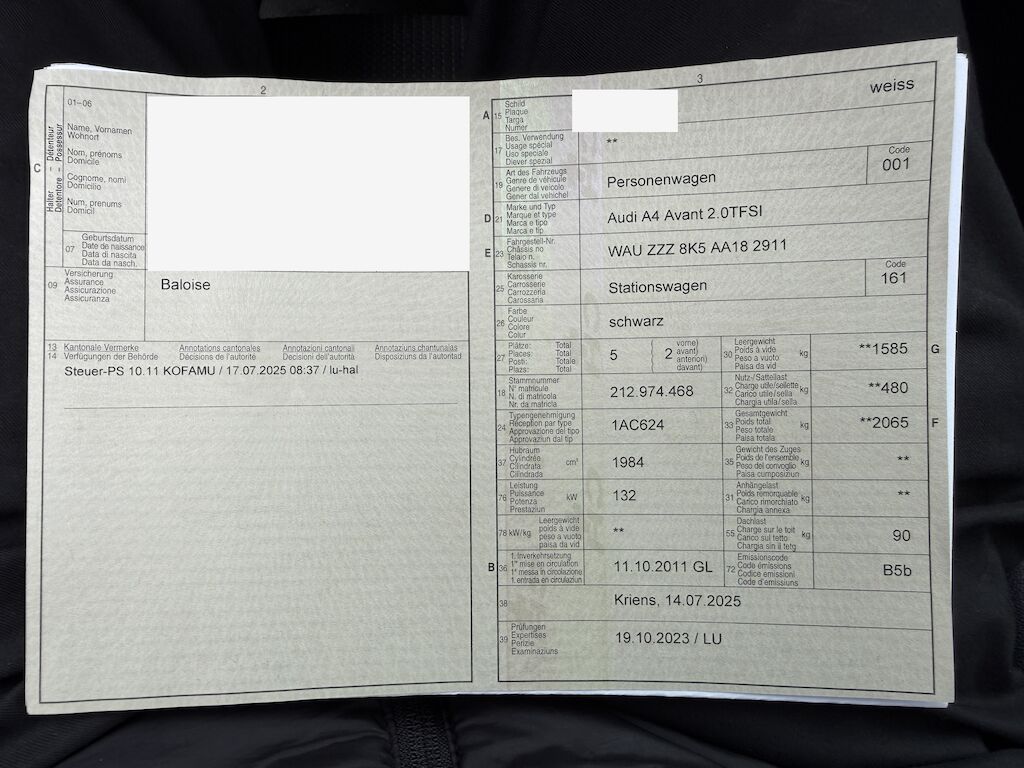 2
01–06
Name, Vornamen
Wohnort
Nom, prénoms
Domicile
Cognome, nomi
Domicilio
Num, prenums
Domicil
C
Halter – Détenteur
Detentore – Possessur
07
Geburtsdatum
Date de naissance
Data di nascita
Data da nasch.
09
Versicherung
Assurance
Assicurazione
Assicuranza
Baloise
13 Kantonale Vermerke Annotations cantonales Annotazioni cantonali Annotaziuns chantunalas
14 Verfügungen der Behörde Décisions de l'autorité Decisioni dell'autorità Disposiziuns da l'autoritad
Steuer-PS 10.11 KOFAMU / 17.07.2025 08:37 / lu-hal
3
weiss
A 15
Schild
Plaque
Targa
Numer
17
Bes. Verwendung
Usage spécial
Uso speciale
Diever spezial
**
19
Art des Fahrzeugs
Genre de véhicule
Genere di veicolo
Gener dal vehichel
Personenwagen
Code
001
D 21
Marke und Typ
Marque et type
Marca e tipo
Marca e tip
Audi A4 Avant 2.0TFSI
E 23
Fahrgestell-Nr.
Châssis no
Telaio n.
Schassis nr.
WAU ZZZ 8K5 AA18 2911
25
Karosserie
Carrosserie
Carrozzeria
Carossaria
Stationswagen
Code
161
26
Farbe
Couleur
Colore
Colur
schwarz
27
Plätze: Total
Places: Total
Posti: Totale
Plazs: Total
5
2
( vorne)
( avant)
( anterion)
( davant)
30
Leergewicht
Poids à vide
Peso a vuoto
Paisa da vid
kg
**1585
G
18
Stammnummer
N° matricule
N. di matricola
Nr. da matricla
212.974.468
32
Nutz-/Sattellast
Charge utile/sellette
Carico utile/sella
Chargia utila/sella
kg
**480
24
Typengenehmigung
Réception par type
Approvazione del tipo
Approvaziun dal tip
1AC624
33
Gesamtgewicht
Poids total
Peso totale
Paisa totala
kg
**2065
F
37
Hubraum
Cylindrée
Cilindrata
Cilindrada
cm³
1984
35
Gewicht des Zuges
Poids de l'ensemble
Peso del convoglio
Paisa cumposiziun
kg
**
76
Leistung
Puissance
Potenza
Prestaziun
kW
132
31
Anhängelast
Poids remorquable
Carico rimorchiato
Chargia annexa
kg
**
78 kW/kg
Leergewicht
poids à vide
peso a vuoto
paisa da vid
**
55
Dachlast
Charge sur le toit
Carico sul tetto
Chargia sin il tetg
kg
90
B 36
1. Inverkehrsetzung
1re mise en circulation
1a messa in circolazione
1. entrada en circulaziun
11.10.2011 GL
72
Emissionscode
Code émissions
Codice emissioni
Code d'emissiuns
B5b
38
Kriens, 14.07.2025
39
Prüfungen
Expertises
Perizie
Examinaziuns
19.10.2023 / LU